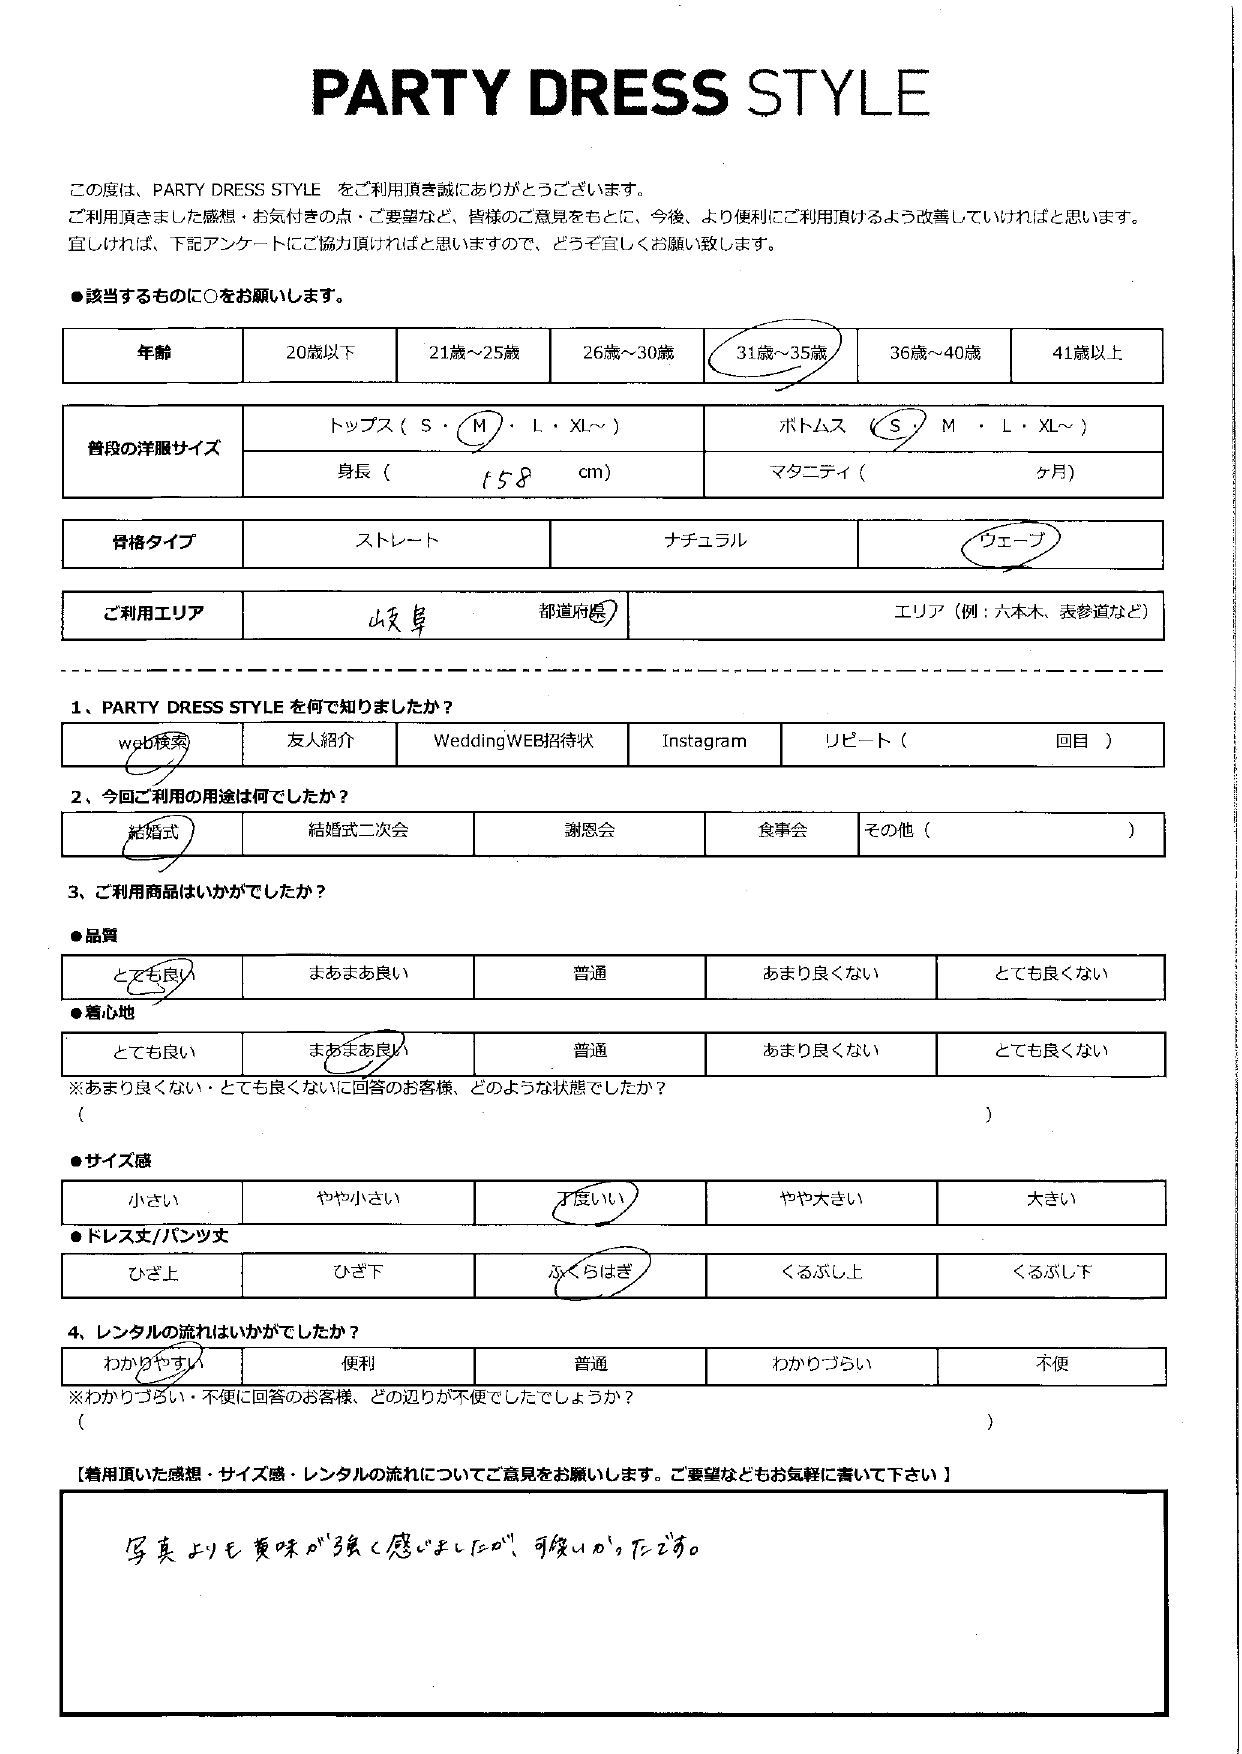 PARTY DRESS STYLE
この度は、PARTY DRESS STYLE をご利用頂き誠にありがとうございます。
ご利用頂きました感想・お気付きの点・ご要望など、皆様のご意見をもとに、今後、より便利にご利用頂けるよう改善していければと思います。
宜しければ、下記アンケートにご協力頂ければと思いますので、どうぞ宜しくお願い致します。
●該当するものに○をお願いします。
年齢 20歳以下 21歳～25歳 26歳～30歳 31歳～35歳 36歳～40歳 41歳以上
普段の洋服サイズ トップス ( S ・ M ・ L ・ XL～ ) ボトムス ( S ・ M ・ L ・ XL～ )
身長 ( 158 cm) マタニティ ( ヶ月)
骨格タイプ ストレート ナチュラル ウェーブ
ご利用エリア 岐阜 都道府県 エリア（例：六本木、表参道など）
1、PARTY DRESS STYLE を何で知りましたか？
web検索 友人紹介 WeddingWEB招待状 Instagram リピート ( 回目 )
2、今回ご利用の用途は何でしたか？
結婚式 結婚式二次会 謝恩会 食事会 その他 ( )
3、ご利用商品はいかがでしたか？
●品質
とても良い まあまあ良い 普通 あまり良くない とても良くない
●着心地
とても良い まあまあ良い 普通 あまり良くない とても良くない
※あまり良くない・とても良くないに回答のお客様、どのような状態でしたか？
( )
●サイズ感
小さい やや小さい 丁度いい やや大きい 大きい
●ドレス丈/パンツ丈
ひざ上 ひざ下 ふくらはぎ くるぶし上 くるぶし下
4、レンタルの流れはいかがでしたか？
わかりやすい 便利 普通 わかりづらい 不便
※わかりづらい・不便に回答のお客様、どの辺りが不便でしたでしょうか？
( )
【着用頂いた感想・サイズ感・レンタルの流れについてご意見をお願いします。ご要望などもお気軽に書いて下さい 】
写真よりも黄味が強く感じましたが、可愛いかったです。